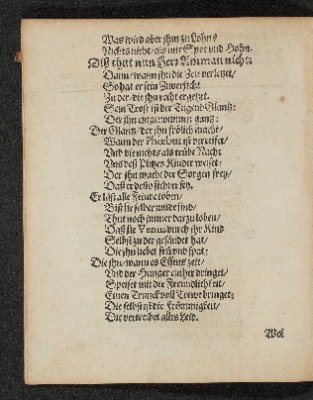 Was wird aber jhm zu Lohn?
Nichts nicht/ als nur Spot und Hohn.
Diß thut nun Herr Amman nicht:
Dann/ wann jhn die Zeit verletzet/
So hat er sein Zuversicht
Zu der/ die jhn recht ergetzt.
Sein Trost ist der Tugend Glantz:
Der jhn eingenommen gantz:
Der Glantz/ der jhn frölich macht/
Wann der Phœbus ist verreiset/
Und die nichts als trübe Nacht
Uns deß Plutzes Kinder weiset:
Der jhn macht der Sorgen frey/
Daß er desto sichrer sey.
Er läst alle Feinde toben/
Biß sie selber müde sind/
Thut noch jmmer darzu loben/
Daß sie Venus durch jhr Kind
Selbst zu der gesändet hat/
Die jhn liebet früh und spat:
Die jhn/ wann es Essens zeit/
Und der Hunger einher dringet/
Speiset mit die Freundlichkeit/
Einen Trunck voll Trewe bringet:
Die selbst ist die Frömmigkeit/
Die vertreibet alles Leid.
Wol